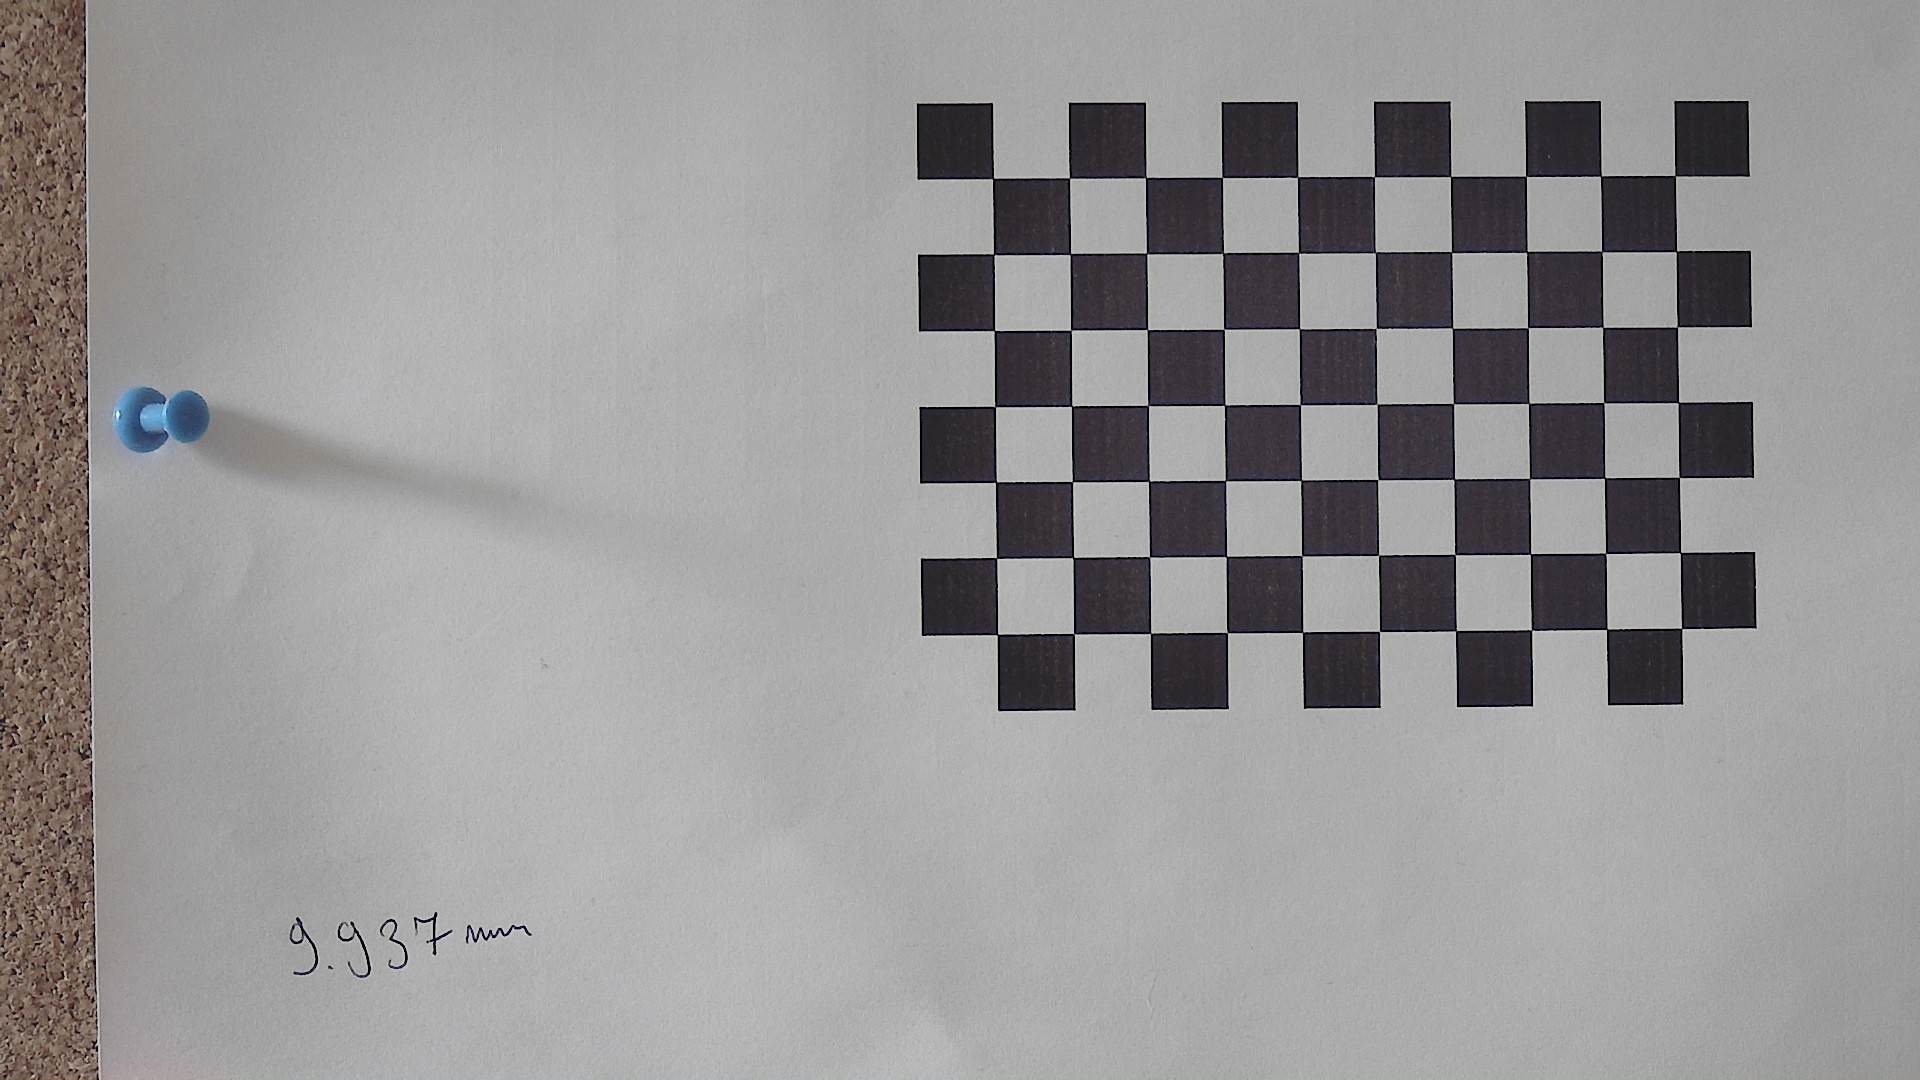 9.937 mm